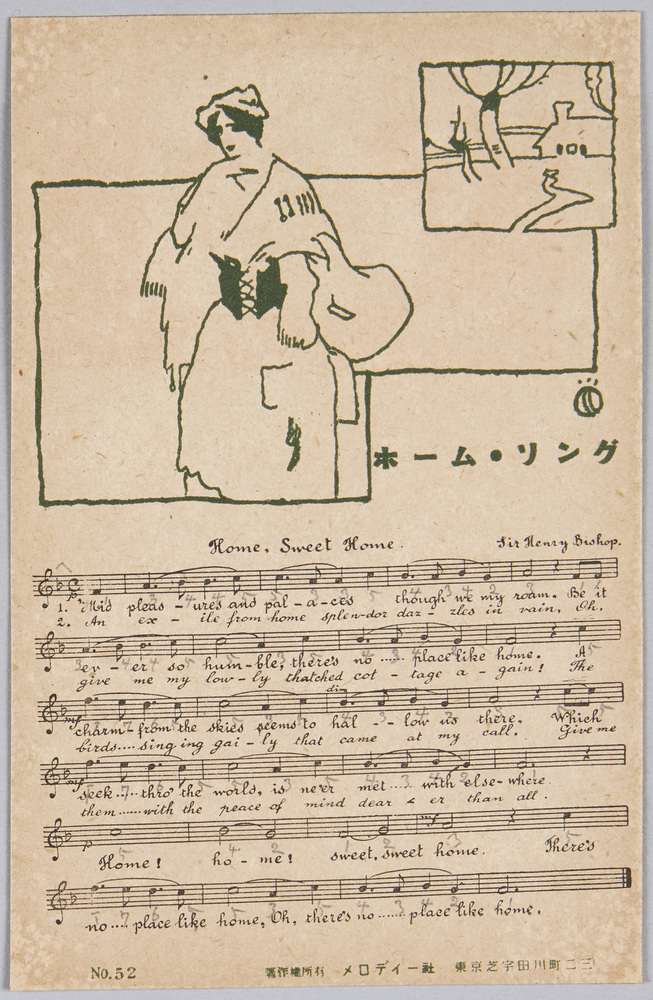 ホーム・ソング
Home, Sweet Home.
Sir Henry Bishop.
1. 'Mid pleas - ures and pal - a - ces though we my roam. Be it
2. An ex - ile from home splen-dor daz - zles in vain, Oh.
ev - er so hum-ble, there's no ...... place like home. A
give me my low - ly thatched cot - tage a - gain! The
dim
mf
charm - from the skies seems to hal - - low us there. Which
birds.... sing ing gai - ly that came at my call. Give me
mf
seek .... thro' the world, is ne'er met .... with else-where.
them .... with the peace of mind dear & er than all.
p
mf
Home! ho - me! sweet, sweet home. There's
no .... place like home, Oh, there's no ...... place like home.
No.52 著作権所有 メロディー社 東京芝宇田川町二三